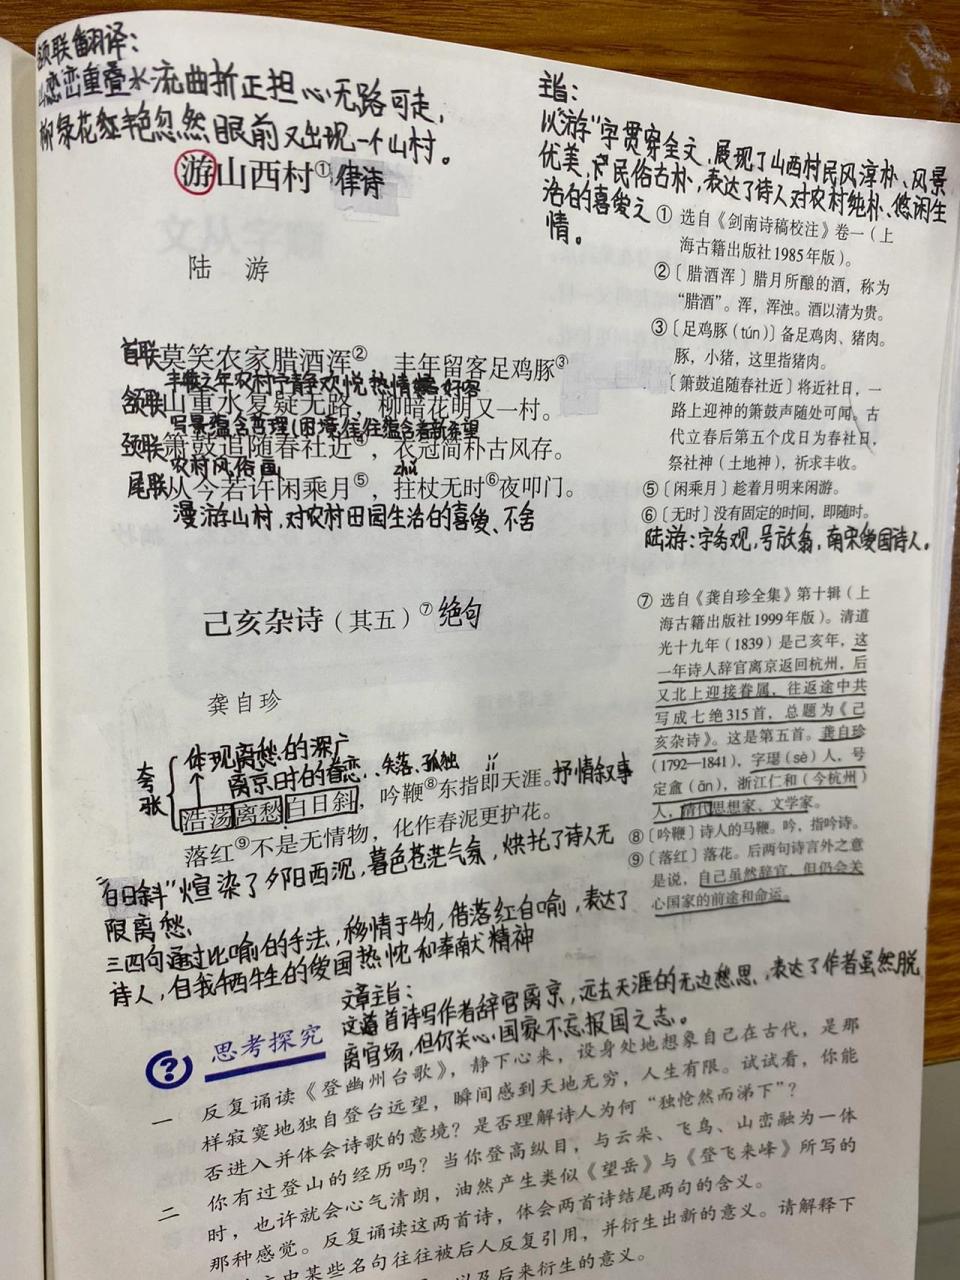 颔联翻译：
山峦重叠水流曲折正担心无路可走，
柳绿花红艳忽然眼前又出现一个山村。
游山西村① 律诗
陆 游
首联 莫笑农家腊酒浑②，丰年留客足鸡豚③
丰收之年农村宁静欢悦 热情 好客
颔联 山重水复疑无路，柳暗花明又一村。
写景蕴含哲理（困境往往蕴含着新希望
颈联 箫鼓追随春社近④，衣冠简朴古风存。
农村风俗画 zhǔ
尾联 从今若许闲乘月⑤，拄杖无时⑥夜叩门。
漫游山村，对农村田园生活的喜爱、不舍
主旨：
以“游”字贯穿全文，展现了山西村民风淳朴、风景
优美，民俗古朴，表达了诗人对农村纯朴、悠闲生
活的喜爱之
情。
① 选自《剑南诗稿校注》卷一（上
海古籍出版社1985年版）。
②〔腊酒浑〕腊月所酿的酒，称为
“腊酒”。浑，浑浊。酒以清为贵。
③〔足鸡豚（tún）〕备足鸡肉、猪肉。
豚，小猪，这里指猪肉。
〔箫鼓追随春社近〕将近社日，一
路上迎神的箫鼓声随处可闻。古
代立春后第五个戊日为春社日，
祭社神（土地神），祈求丰收。
⑤〔闲乘月〕趁着月明来闲游。
⑥〔无时〕没有固定的时间，即随时。
陆游：字务观，号放翁，南宋爱国诗人。
己亥杂诗（其五）⑦ 绝句
龚自珍
夸张
体现离愁的深广
离京时的眷恋、失落、孤独 jí
浩荡离愁白日斜，吟鞭⑧东指即天涯。抒情叙事
落红⑨不是无情物，化作春泥更护花。
“白日斜”煊染了夕阳西沉，暮色苍茫气氛，烘托了诗人无
限离愁、
三四句通过比喻的手法，移情于物，借落红自喻，表达了
诗人，自我牺牲的爱国热忱和奉献精神
⑦ 选自《龚自珍全集》第十辑（上
海古籍出版社1999年版）。清道
光十九年（1839）是己亥年，这
一年诗人辞官离京返回杭州，后
又北上迎接眷属，往返途中共
写成七绝315首，总题为《己
亥杂诗》。这是第五首。龚自珍
（1792—1841），字璱（sè）人，号
定盦（ān），浙江仁和（今杭州）
人，清代思想家、文学家。
⑧〔吟鞭〕诗人的马鞭。吟，指吟诗。
⑨〔落红〕落花。后两句诗言外之意
是说，自己虽然辞官，但仍会关
心国家的前途和命运。
文章主旨：
这首诗写作者辞官离京，远去天涯的无边愁思，表达了作者虽然脱
离官场，但仍关心国家不忘报国之志。
思考探究
一 反复诵读《登幽州台歌》，静下心来，设身处地想象自己在古代，是那
样寂寞地独自登台远望，瞬间感到天地无穷，人生有限。试试看，你能
否进入并体会诗歌的意境？是否理解诗人为何“独怆然而涕下”？
二 你有过登山的经历吗？当你登高纵目，与云朵、飞鸟、山峦融为一体
时，也许就会心气清朗，油然产生类似《望岳》与《登飞来峰》所写的
那种感觉。反复诵读这两首诗，体会两首诗结尾两句的含义。
史中某些名句往往被后人反复引用，并衍生出新的意义。请解释下
以及后来衍生的意义。